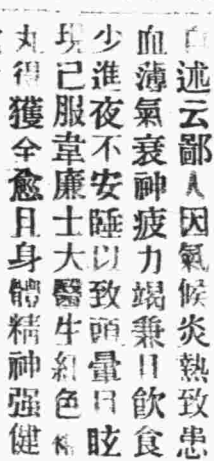 自述云鄙人因氣候炎熱致患
血薄氣衰神疲力竭兼日飲食
少進夜不安睡以致頭暈目眩
現已服韋廉士大醫生紅色補
丸得獲全愈且身體精神强健